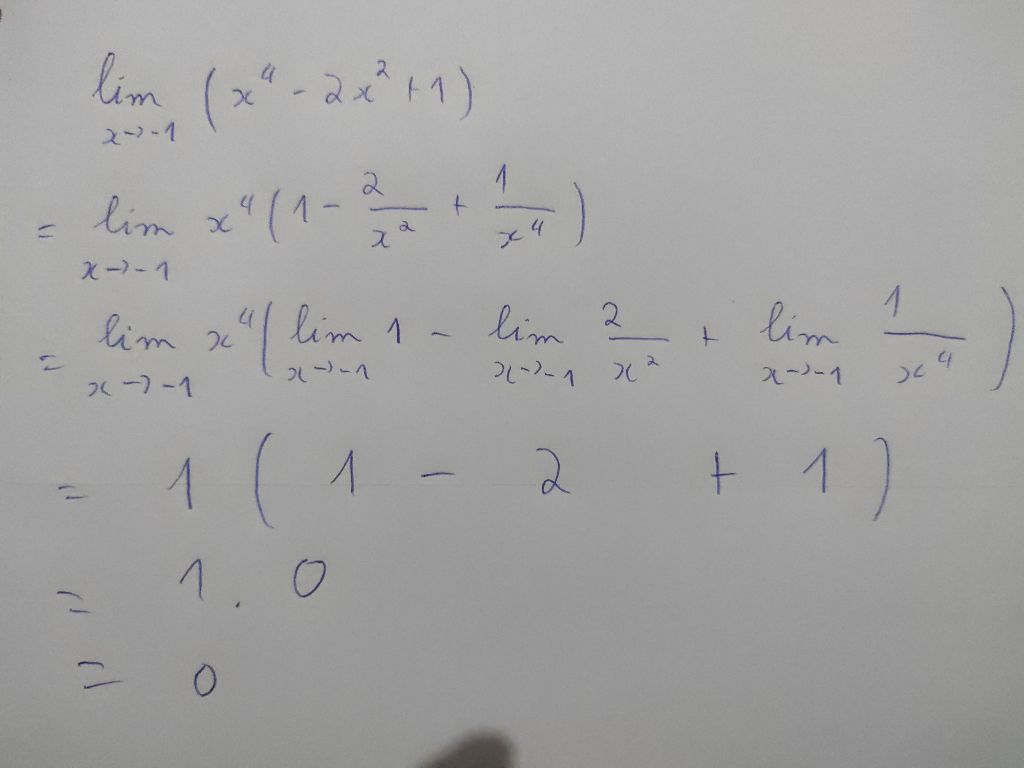 lim x→-1 (x⁴ - 2x² + 1)
= lim x→-1 x⁴ (1 - 2/x² + 1/x⁴)
= lim x→-1 x⁴ (lim x→-1 1 - lim x→-1 2/x² + lim x→-1 1/x⁴)
= 1 (1 - 2 + 1)
= 1 . 0
= 0